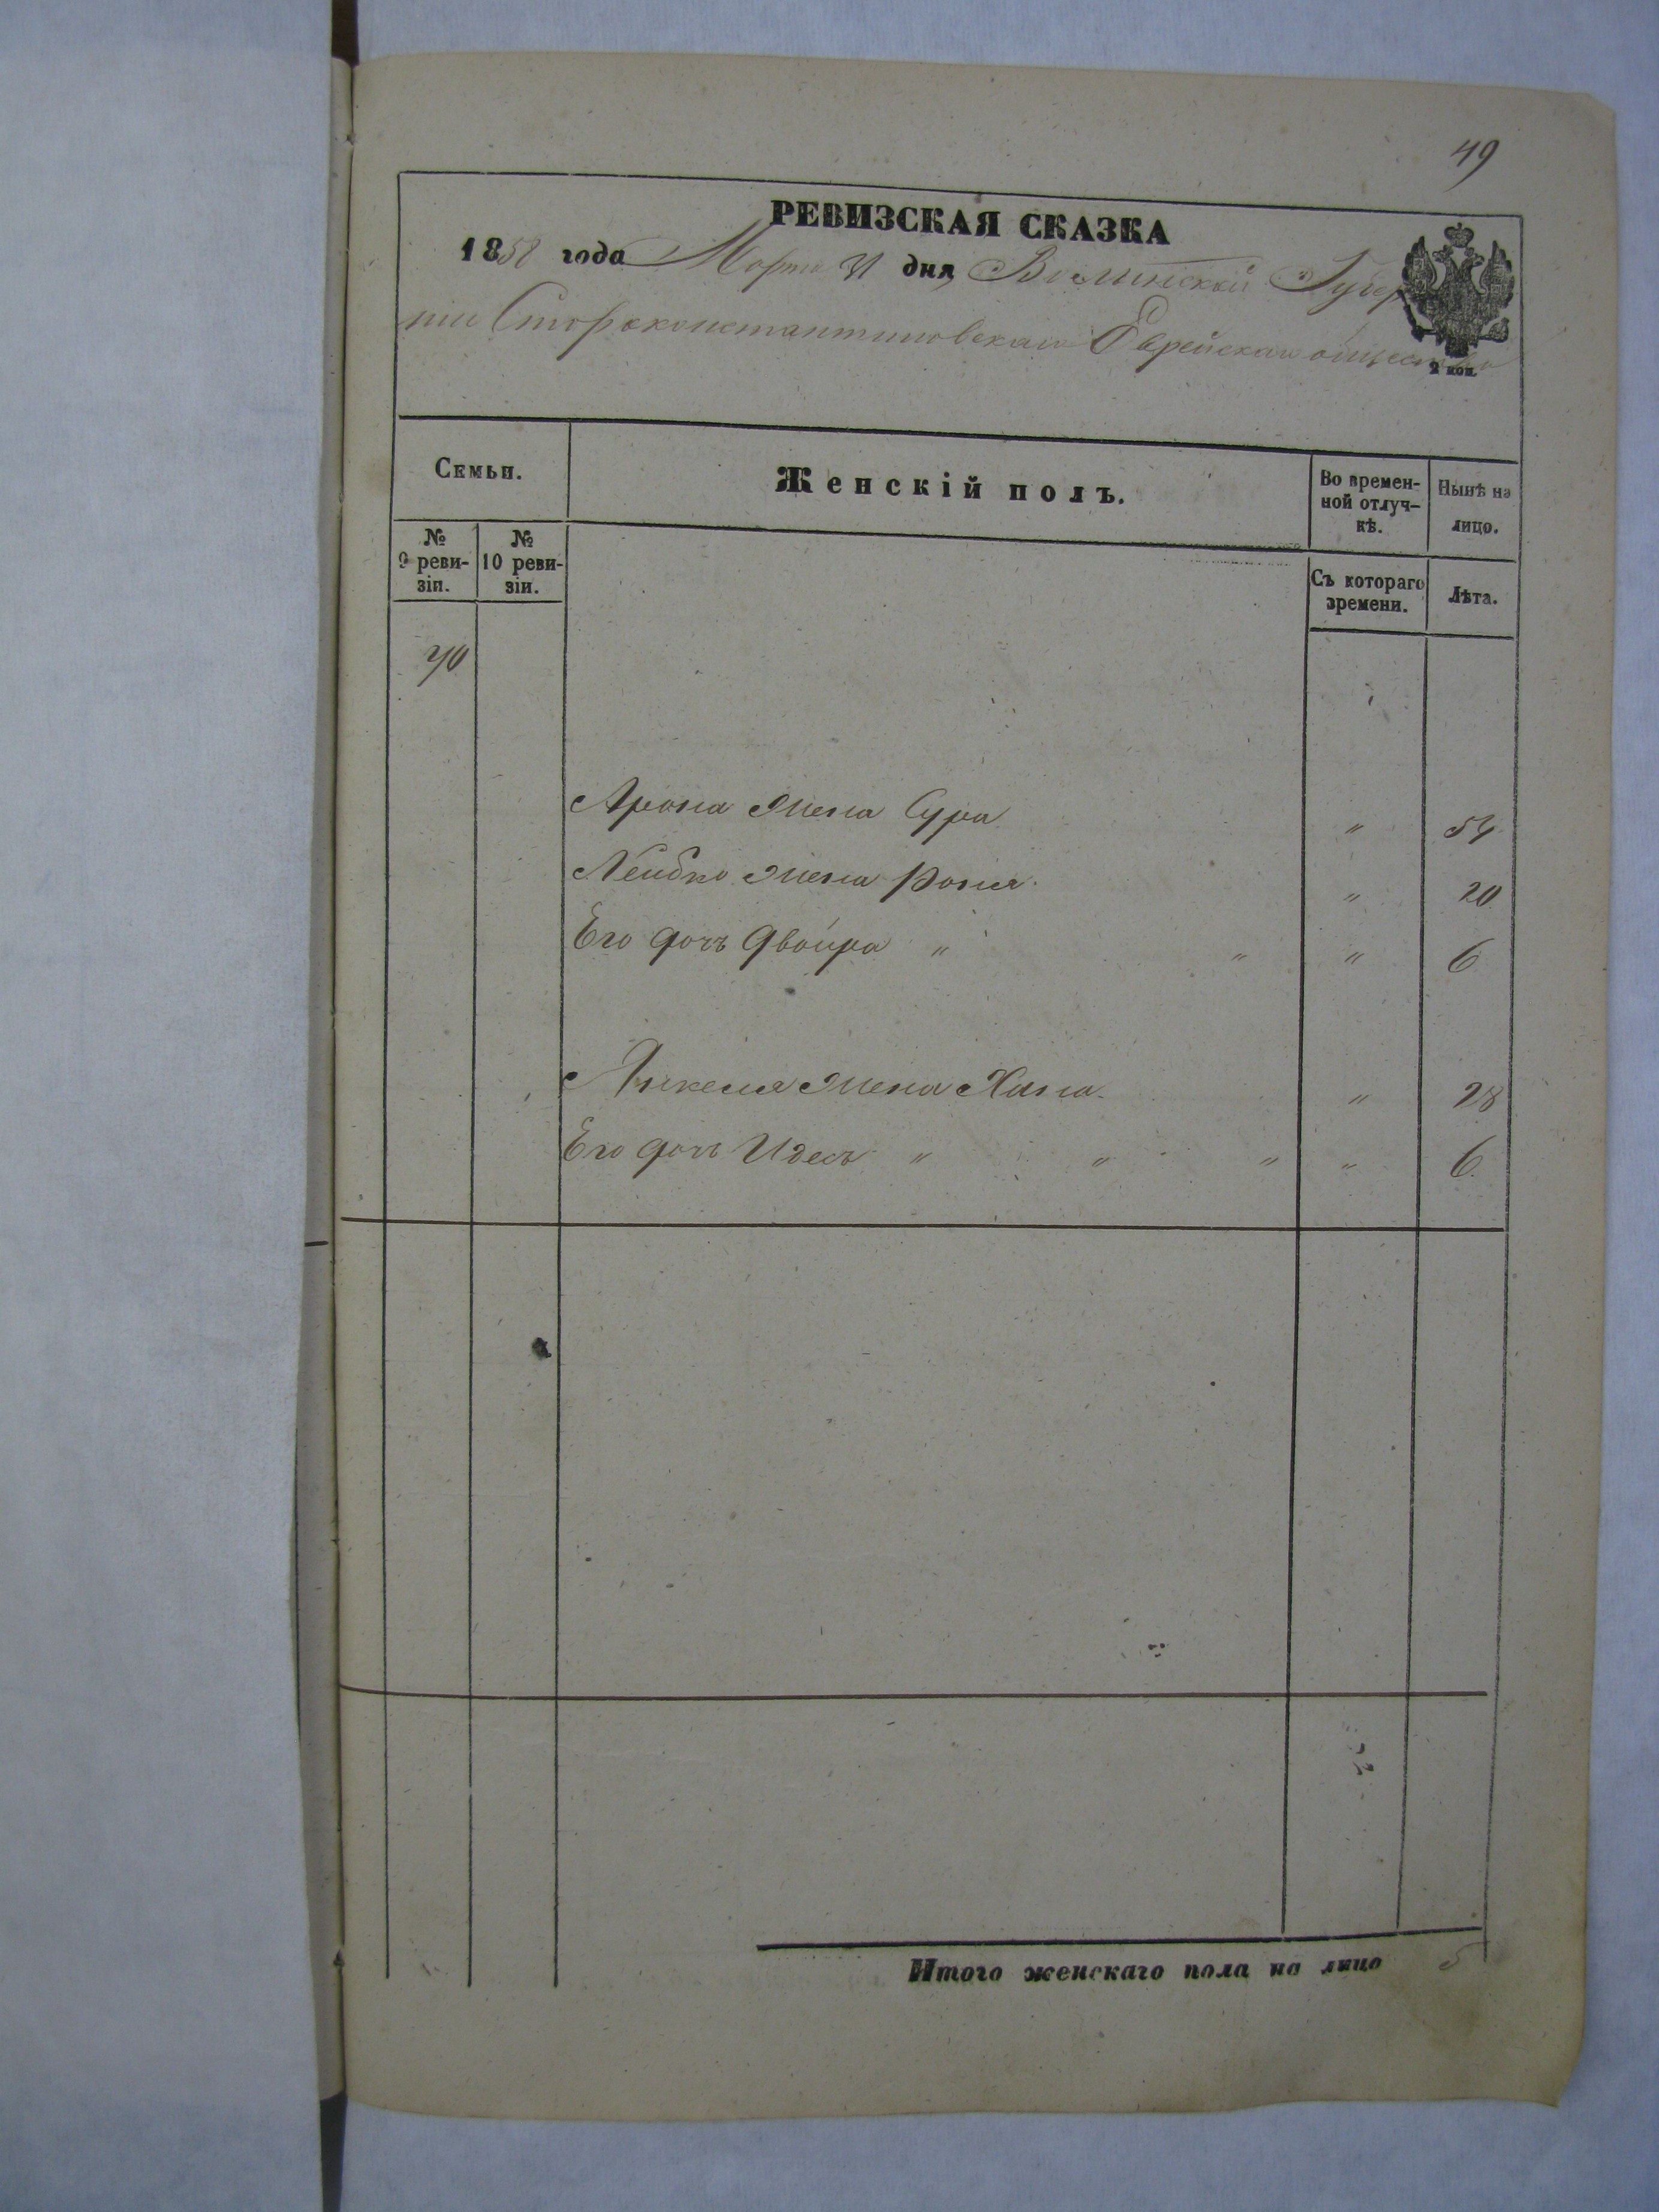 49
РЕВИЗСКАЯ СКАЗКА
1858 года Марта 31 дня Волынской Губер
нии Староконстантиновскаго Еврейскаго общества
2 коп.
Семьи.
Женскій полъ.
Во времен-
ной отлуч-
кѣ.
Нынѣ на
лицо.
№
9 реви-
зіи.
№
10 реви-
зіи.
Съ котораго
времени.
Лѣта.
40
Арона жена Сура " 54
Лейбко жена Рония " 20
Его дочь Двойра " " " 6
Янкеля жена Хана " 28
Его дочь Идесъ " " " " 6
Итого женскаго пола на лицо 5